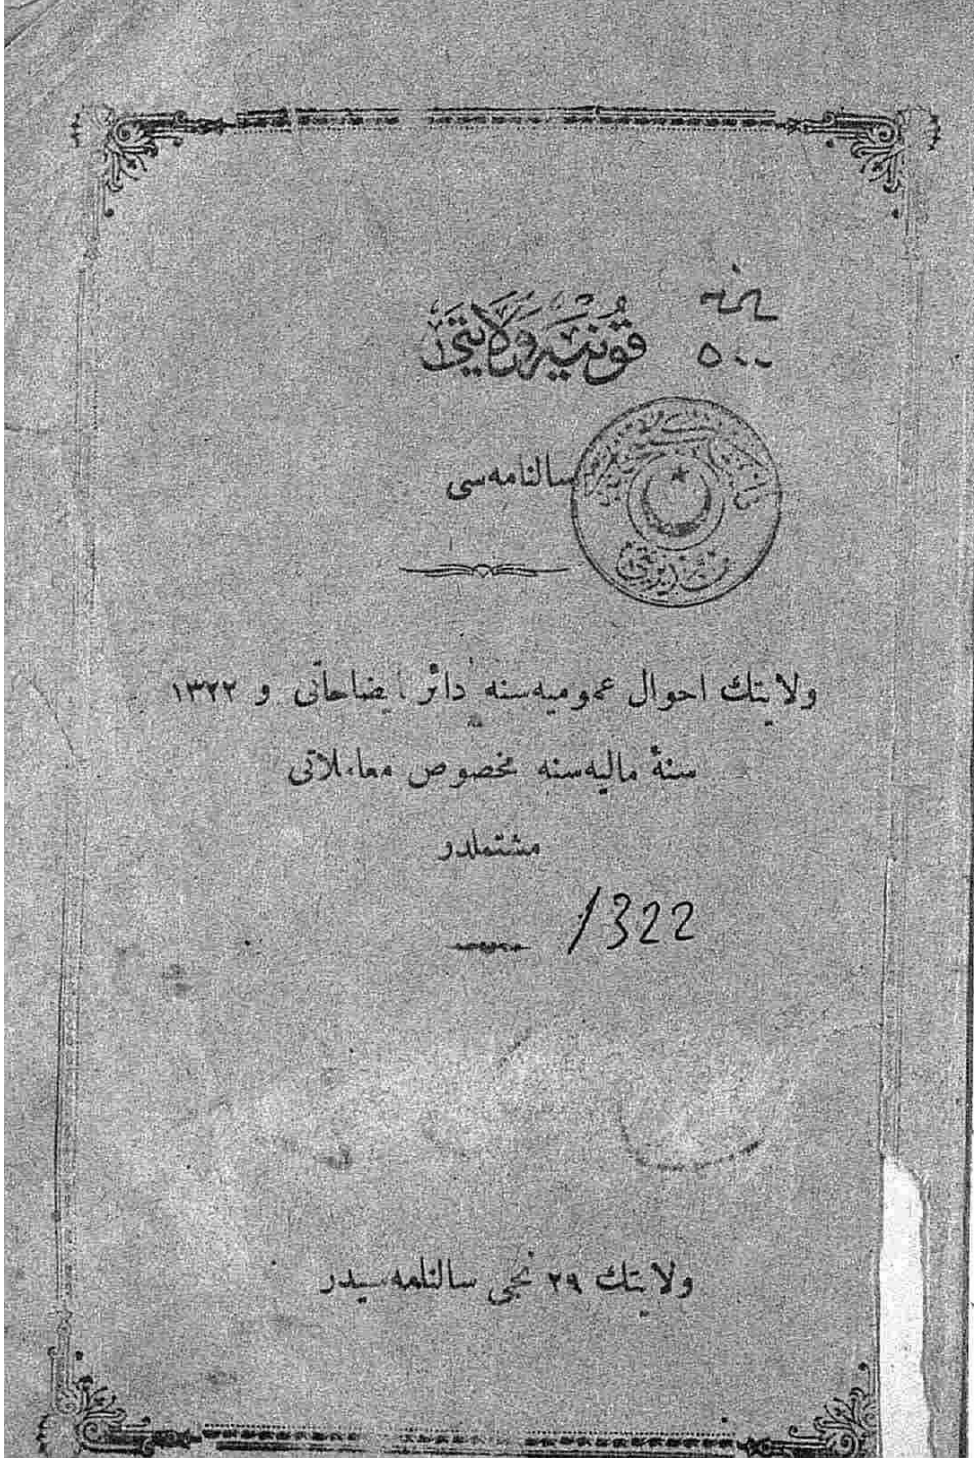 قونيه ولايتى
٥٠٠
سالنامه‌سى
ولايتك احوال عموميه‌سنه دائر ايضاحاتى و ١٣٢٢
سنهٔ ماليه‌سنه مخصوص معاملاتى
مشتملدر
1322
ولايتك ٢٩ نجى سالنامه‌سيدر